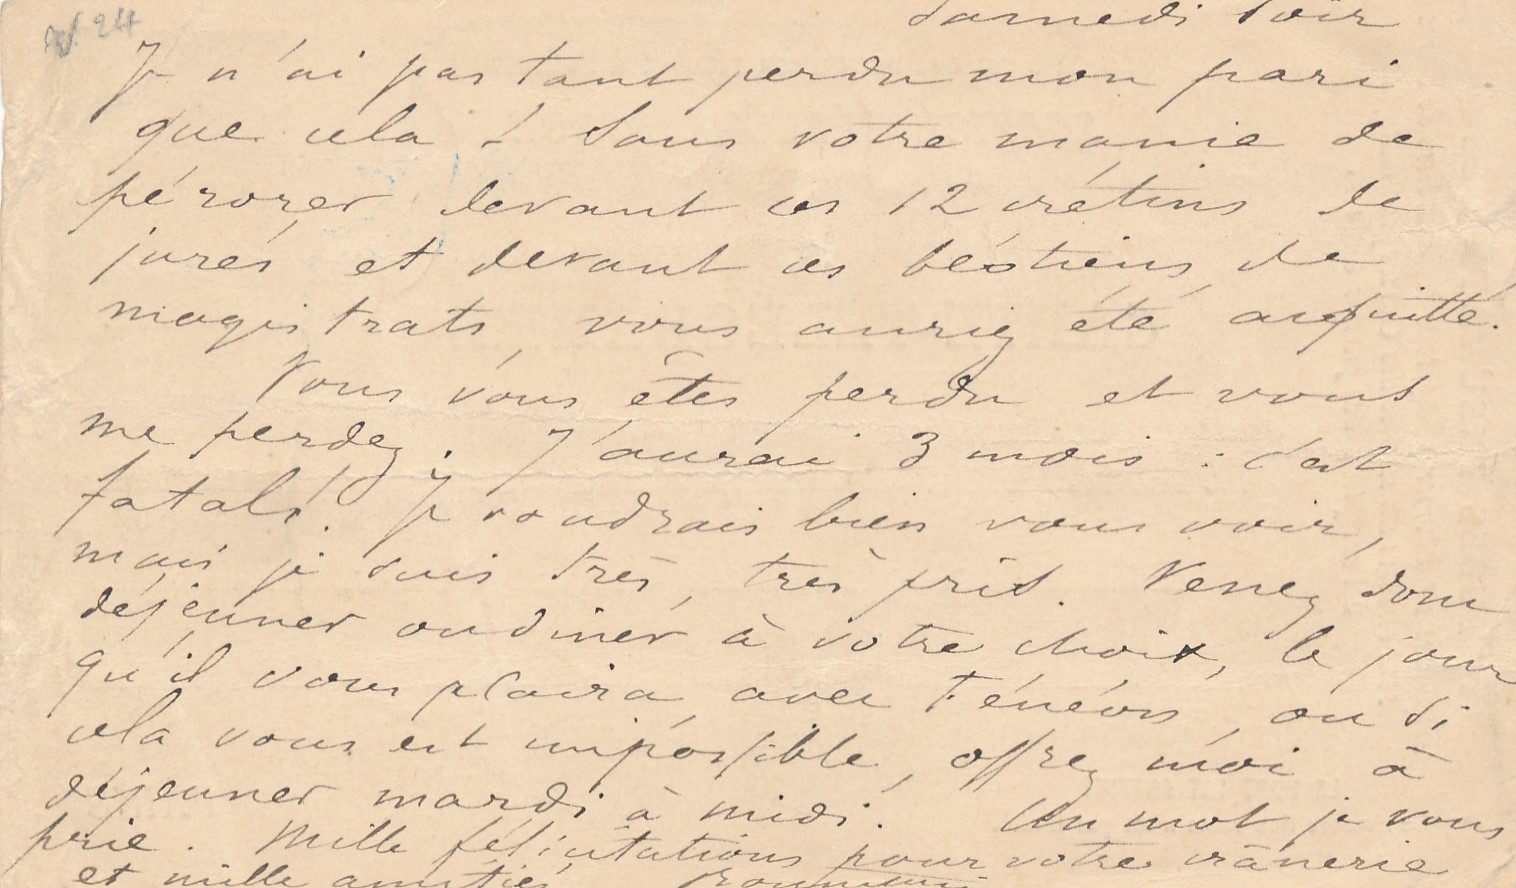 N 24
Samedi soir
Je n'ai pas tant perdu mon pari
que cela ! Sans votre manie de
pérorer devant ces 12 crétins de
jurés et devant ces béotiens de
magistrats, vous auriez été acquitté.
Vous vous êtes perdu et vous
me perdez. J'aurai 3 mois : c'est
fatal ! Je voudrais bien vous voir,
mais je suis très, très pris. Venez donc
déjeuner ou diner à votre choix, le jour
qu'il vous plaira, avec Fénéon, ou si
cela vous est impossible, offrez moi à
déjeuner mardi à midi. Un mot je vous
prie. Mille félicitations pour votre crânerie
et mille amitiés